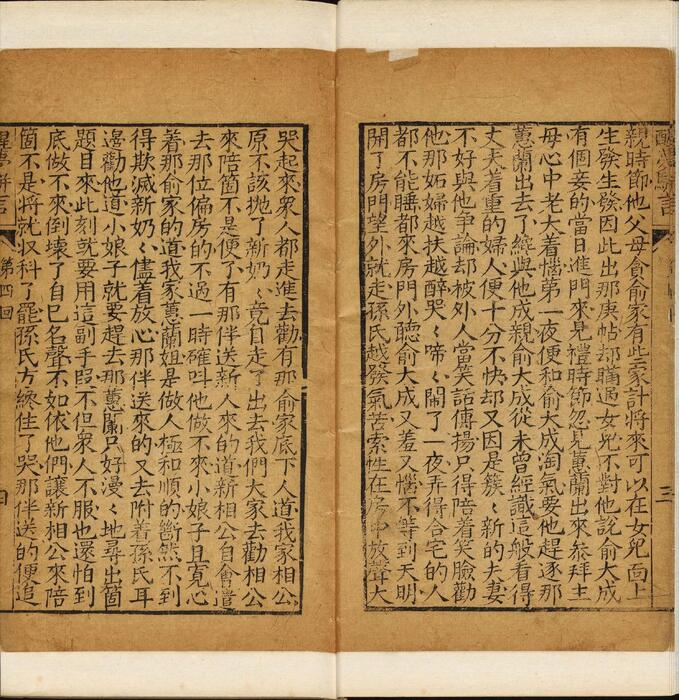 親時節他父母會俞家有些家計將來可以在女兒面上
生發生發因此出那庚帖却瞞過女兒不對他說俞大成
有個妾的當日進門來見禮時節忽見蕙蘭出來叅拜主
母心中老大着惱第一夜便和俞大成淘氣要他趕逐那
蕙蘭出去了纔與他成親俞大成從未曾經識這般看得
丈夫着重的婦人便十分不快却又因是簇〻新的夫妻
不好與他爭論却被外人當笑話傳揚只得陪着笑臉勸
他那妬婦越扶越醉哭〻啼〻鬧了一夜弄得合宅的人
都不能睡都來房門外聽俞大成又羞又惱不等到天明
開了房門望外就走孫氏越發氣苦索性在房中放聲大
哭起來衆人都走進去勸有那俞家底下人道我家相公
原不該抛了新奶〻竟自走了出去我們大家去勸相公
來陪箇不是便了有那伴送新人來的道新相公自會遣
去那位偏房的不過一時確叫他做不來小娘子且寬心
着那俞家的道我家蕙蘭姐是做人極和順的斷然不到
得欺滅新奶〻儘着放心那伴送來的又去附着孫氏耳
邊勸他道小娘子就要趕去那蕙蘭只好漫〻地尋出箇
題目來此刻就要用這副手段不但衆人不服也還怕到
底做不來倒壞了自已名聲不如依他們讓新相公來陪
箇不是將就収科了罷孫氏方纔住了哭那伴送的便追
醒夢駢言
第四回
四
三